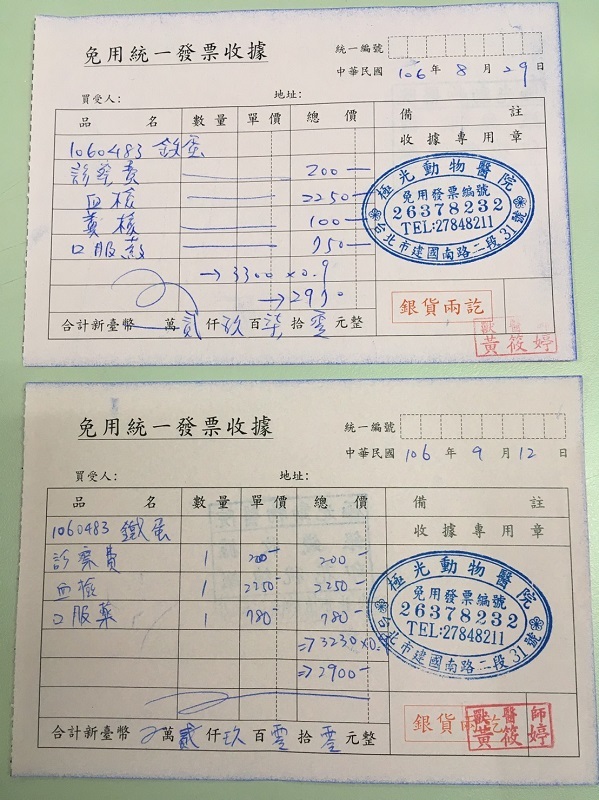 免用統一發票收據
統一編號
中華民國 106 年 8 月 29 日
買受人: 地址:
品 名 數量 單價 總價 備 註
收據專用章
1060483 鉄蛋
診察費 200-
血檢 2250-
糞檢 100-
口服藥 750-
→ 3300 x 0.9
→ 2970
合計新臺幣 萬 貳 仟 玖 百 柒 拾 零 元整
極光動物醫院
免用發票編號
26378232
TEL:27848211
台北市建國南路二段31號
銀貨兩訖
獸醫
黃筱婷
免用統一發票收據
統一編號
中華民國 106 年 9 月 12 日
買受人: 地址:
品 名 數量 單價 總價 備 註
收據專用章
1060483 鐵蛋
診察費 1 200- 200-
血檢 1 2250- 2250-
口服藥 1 780- 780-
⇒ 3230 x 0.
⇒ 2900-
合計新臺幣 萬 貳 仟 玖 百 零 拾 零 元整
極光動物醫院
免用發票編號
26378232
TEL:27848211
台北市建國南路二段31號
銀貨兩訖
獸醫師
黃筱婷